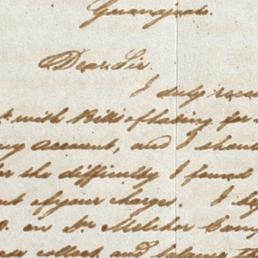 Guanajuato.
Dear Sir.
I duly recei
with Bills of lading for
my account, and I should
for the difficulty I found
of your charges. I
on Dr Melchor Camp
collect and